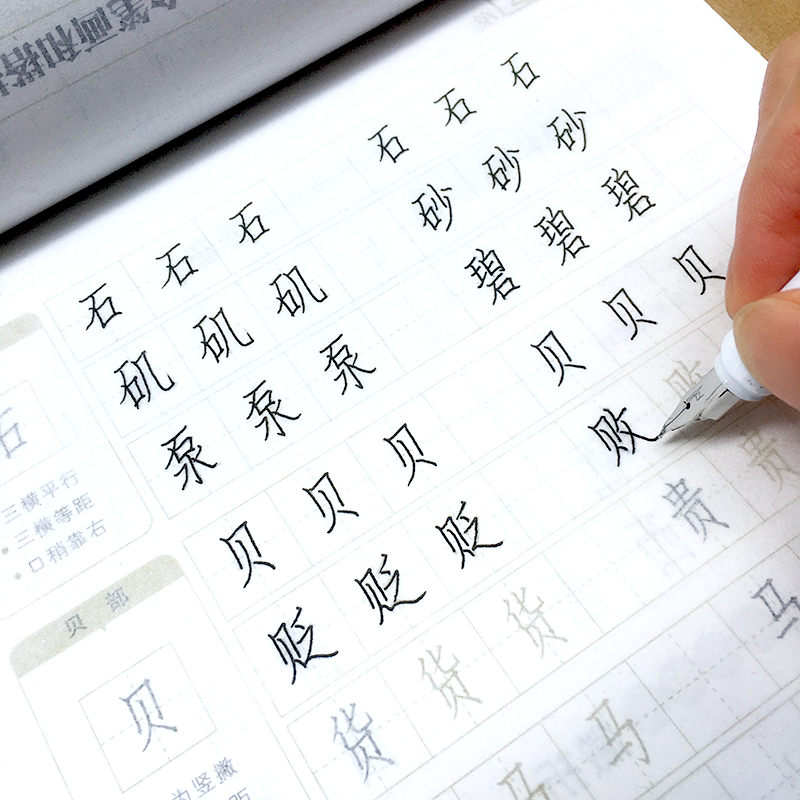 笔画和搭
石 石 石 石 石 石
矶 矶 矶 砂 砂 砂
泵 泵 泵 碧 碧 碧
石
三横平行
三横等距
口稍靠右
贝 贝 贝 贝 贝 贝
贬 贬 贬 败 败
货 货 货 贵 贵
马 马 马
贝部
贝
为竖撇